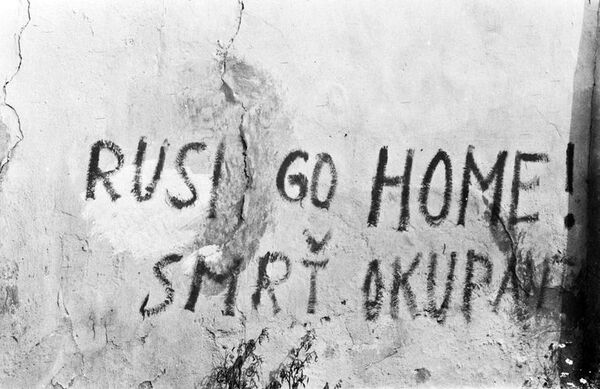 RUSI GO HOME!
SMRŤ